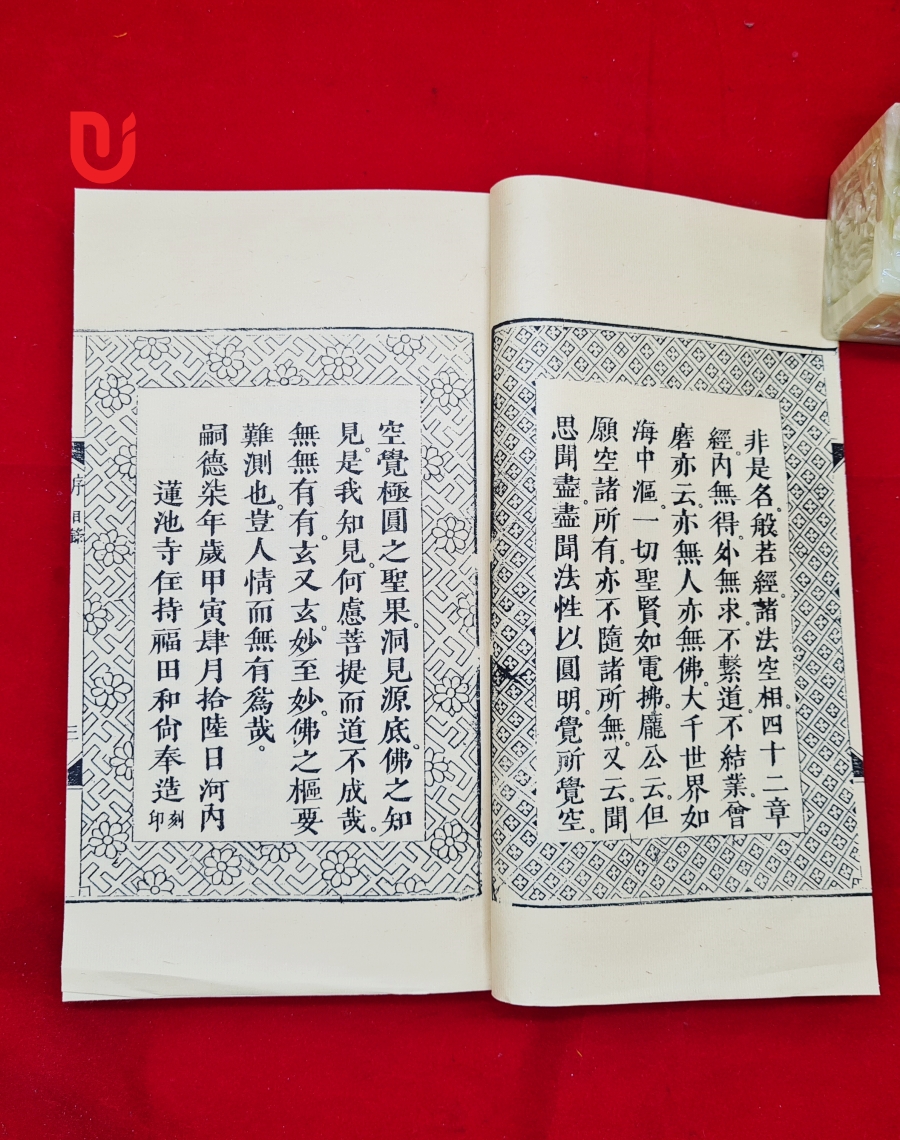 非是名般若經。諸法空相。四十二章
經。內無得。外無求。不繫道。不結業。曾
磨亦云。亦無人亦無佛。大千世界如
海中漚。一切聖賢如電拂。龐公云。但
願空諸所有。亦不隨諸所無。又云。聞
思聞盡。盡聞法性以圓明。覺所覺空。
空覺極圓之聖果。洞見源底。佛之知
見。是我知見。何慮菩提而道不成哉。
無無有有。玄又玄。妙至妙。佛之樞要
難測也。豈人情而無有爲哉。
嗣德柒年歲甲寅肆月拾陸日河內
蓮池寺住持福田和尙奉造刻印
序
三